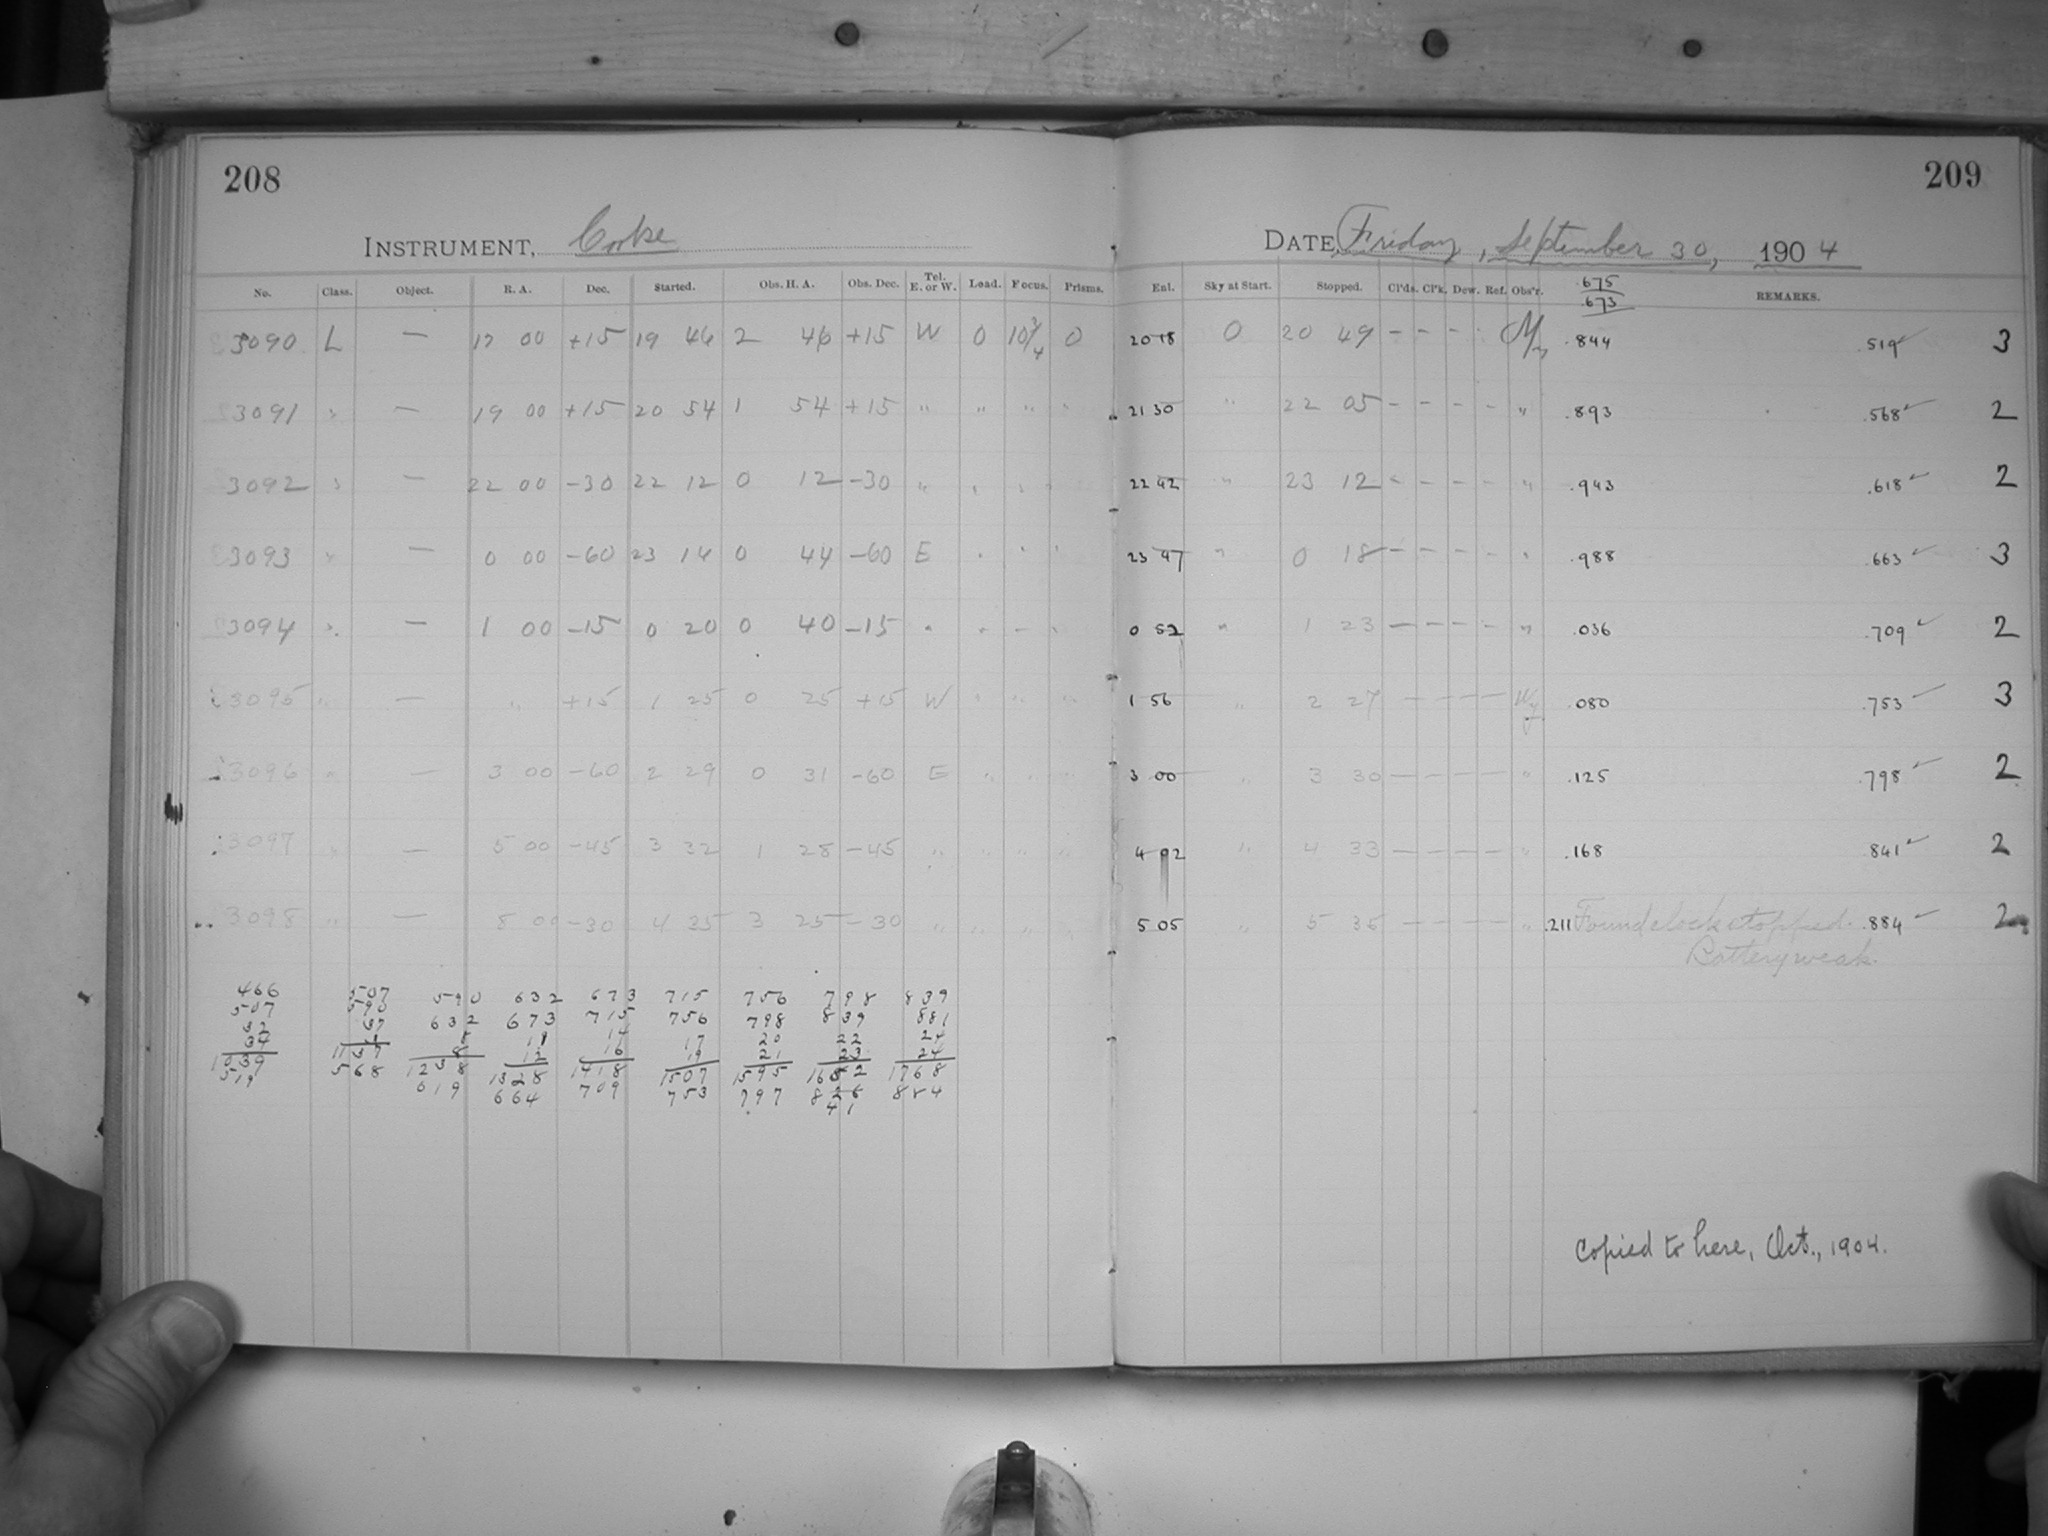 208
209
INSTRUMENT, Cooke
DATE, Friday, September 30, 1904
No. Class. Object. R. A. Dec. Started. Obs. H. A. Obs. Dec. Tel. E. or W. Load. Focus. Prisms. Enl. Sky at Start. Stopped. Cl'ds. Cl'k. Dew. Ref. Obs'r. .675 .673 REMARKS.
3090 L — 17 00 +15 19 46 2 46 +15 W 0 10 3/4 0 20 18 0 20 49 - - - .844 .519 ✓ 3
3091 " — 19 00 +15 20 54 1 54 +15 " " " " 21 30 " 22 05 - - - - " .893 .568 ✓ 2
3092 " — 22 00 -30 22 12 0 12 -30 " " " " 22 42 " 23 12 - - - - " .943 .618 ✓ 2
3093 " — 0 00 -60 23 14 0 44 -60 E " " " 23 47 " 0 18 - - - - " .988 .663 ✓ 3
3094 " — 1 00 -15 0 20 0 40 -15 " " " " 0 52 " 1 23 - - - - " .036 .709 ✓ 2
3095 " — " +15 1 25 0 25 +15 W " " " 1 56 " 2 27 — — — — .080 .753 ✓ 3
3096 " — 3 00 -60 2 29 0 31 -60 E " " " 3 00 " 3 30 — — — — " .125 .798 ✓ 2
3097 " — 5 00 -45 3 32 1 28 -45 " " " " 4 02 " 4 33 — — — — " .168 .841 ✓ 2
3098 " — 8 00 -30 4 35 3 25 -30 " " " " 5 05 " 5 36 — — — — " .211 Found clock stopped. .884 ✓ 2
Battery weak.
466 507 590 632 673 715 756 798 839
507 590 632 673 715 756 798 839 881
32 37 8 11 14 17 20 22 24
34 12 16 19 21 23 24
1039 1137 1238 1328 1418 1507 1595 1682 1768
519 568 619 664 709 753 797 884
41
Copied to here, Oct., 1904.